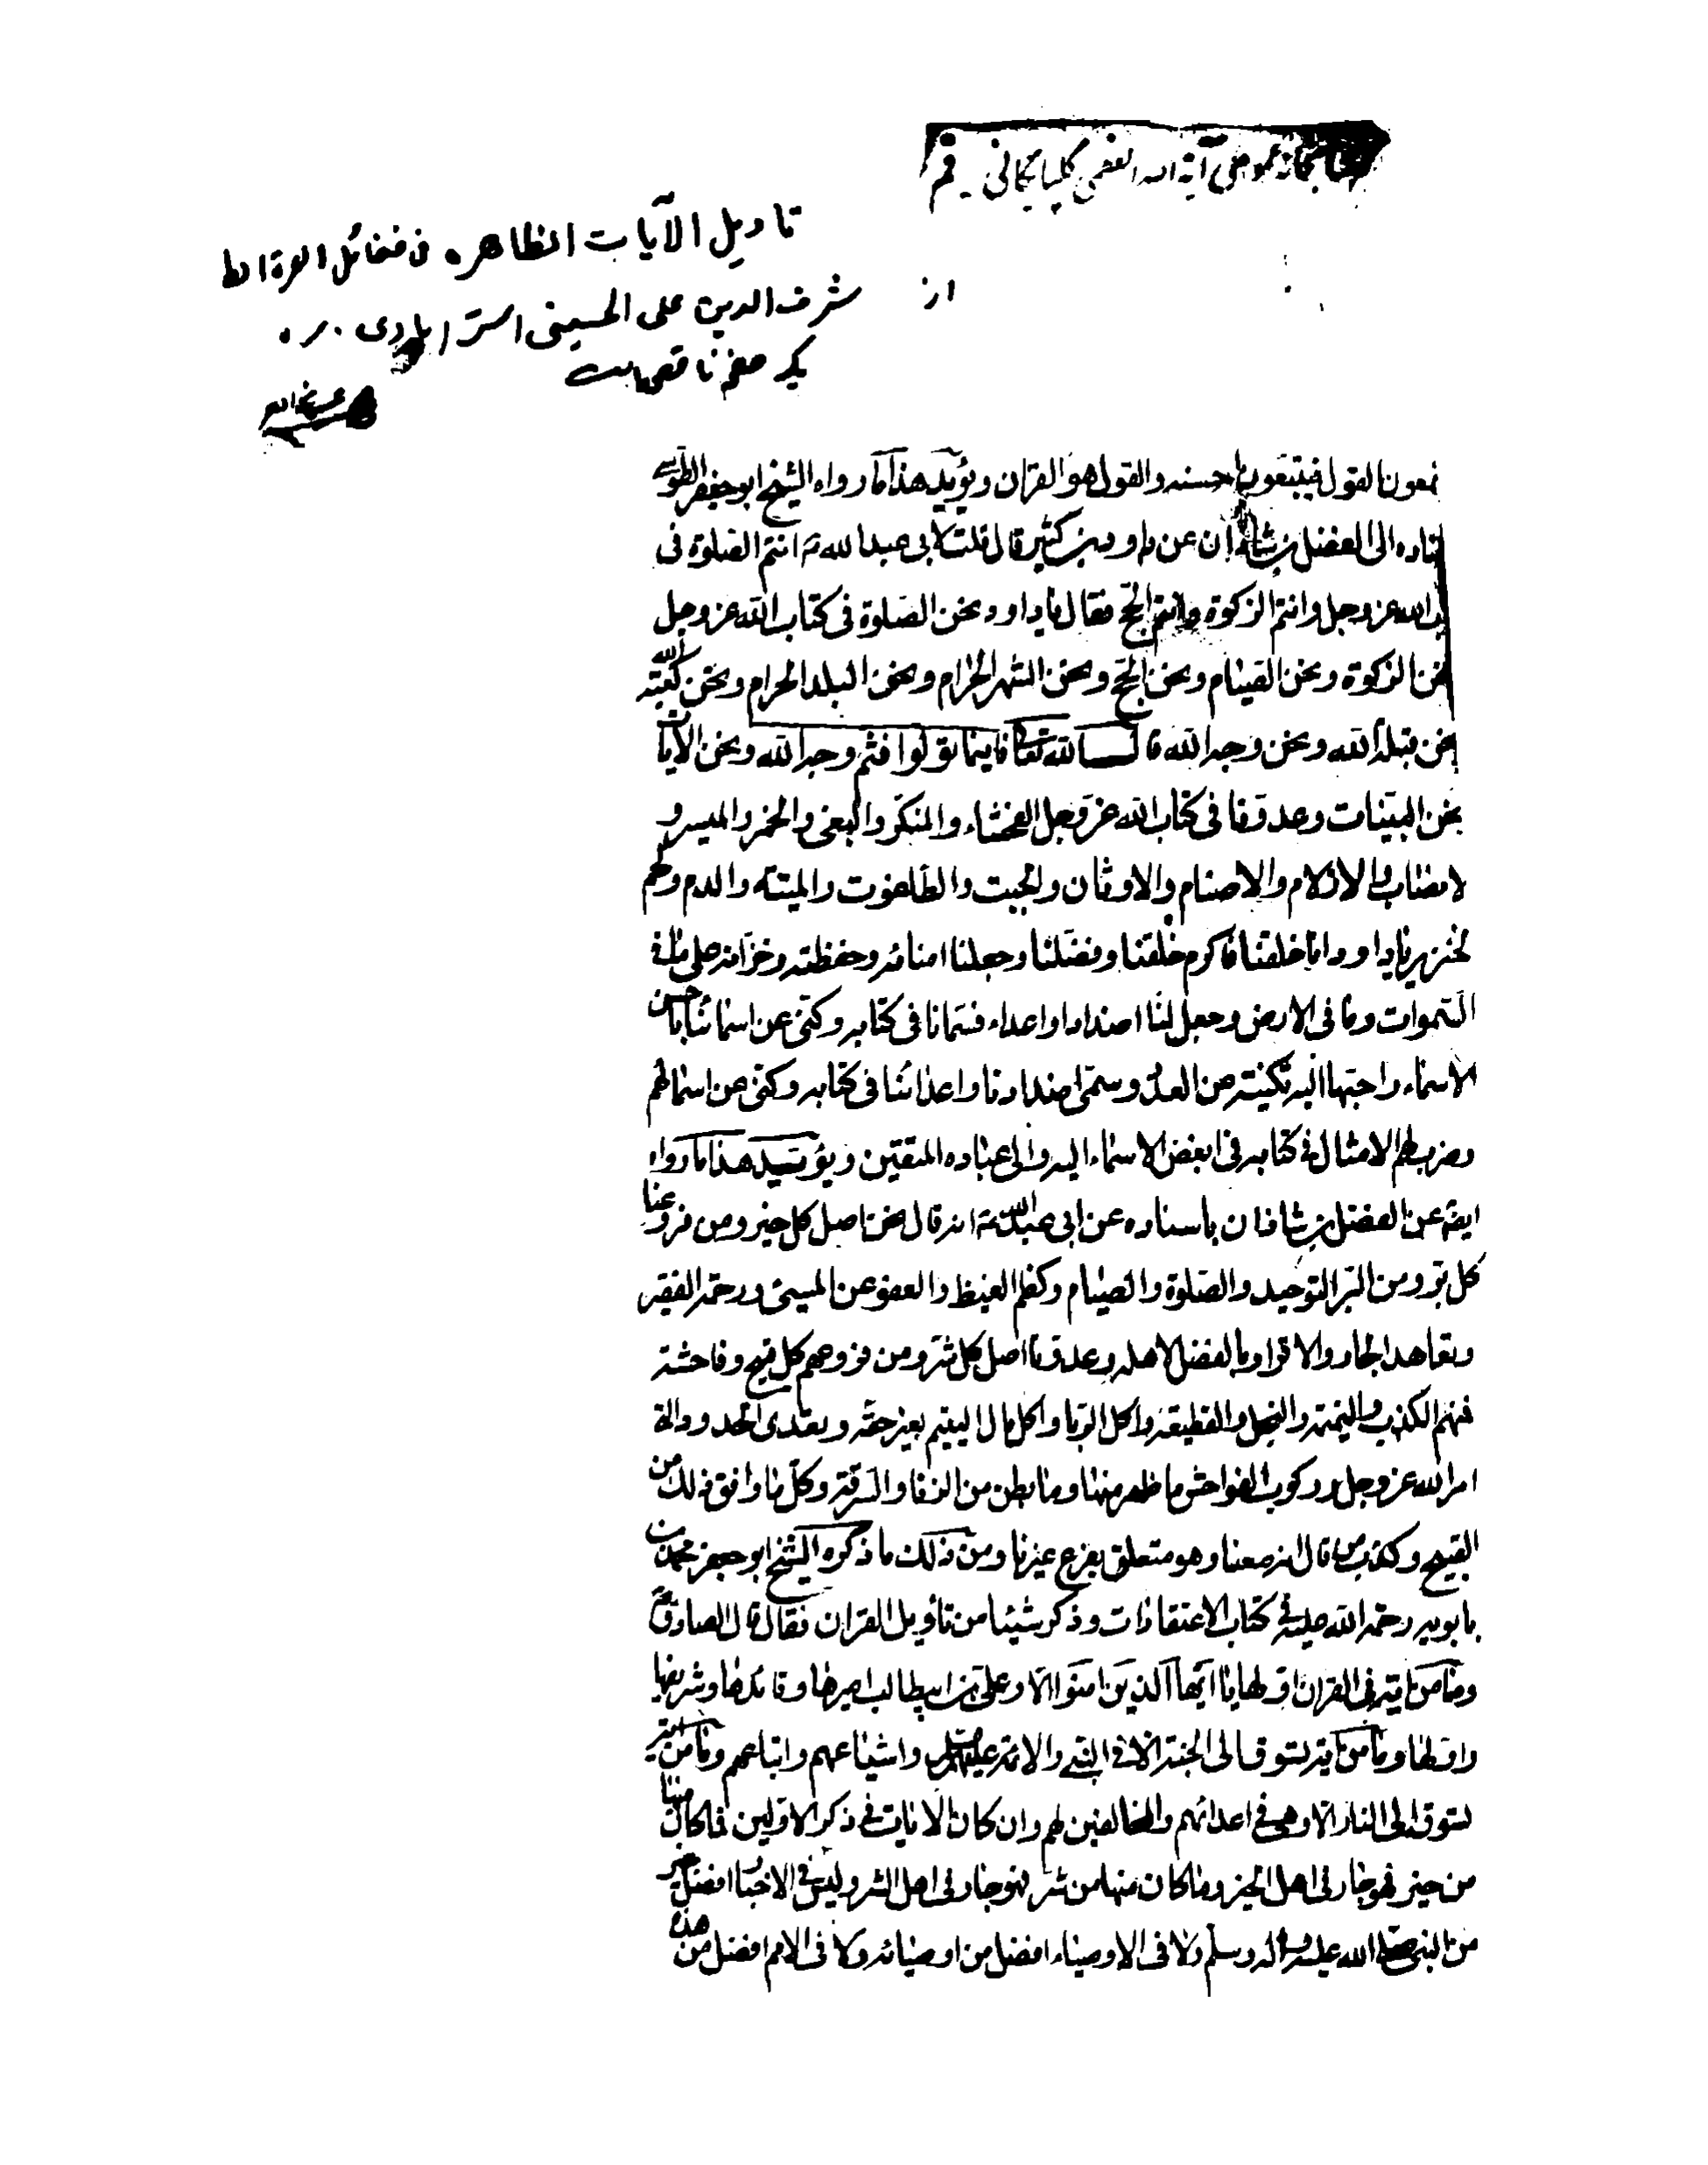 كتابخانه عمومى آية الله العظمى گلپايگانى - قم
تاويل الآيات الظاهره فى فضائل العترة الط
از شرف الدين على الحسينى استرابادى ره
يك صفحه ناقص است
معون القول فيتبعون احسنه والقول هو القران ويؤيد هذا ما رواه الشيخ ابو جعفر الطوسى
ناده الى الفضل بن شاذان عن داود بن كثير قال قلت لابى عبد الله ع انتم الصلوة فى
ب الله عز وجل وانتم الزكوة وانتم الحج فقال يا داود نحن الصلوة فى كتاب الله عز وجل
نحن الزكوة ونحن الصيام ونحن الحج ونحن الشهر الحرام ونحن البلد الحرام ونحن كعبة الله
نحن قبلة الله ونحن وجه الله قال الله تعالى فاينما تولوا فثم وجه الله ونحن الايات
نحن البينات وعدونا فى كتاب الله عز وجل الفحشاء والمنكر والبغى والخمر والميسر و
لانصاب والازلام والاصنام والاوثان والجبت والطاغوت والميتة والدم ولحم
لخنزير يا داود ان الله خلقنا فاكرم خلقنا وفضلنا وجعلنا امنائه وحفظته وخزانه على ما فى
السموات وما فى الارض وجعل لنا اضدادا واعداء فسمانا فى كتابه وكنى عن اسمائنا باحسن
الاسماء واحبها اليه تكنية عن العدو وسمى اضدادنا واعدائنا فى كتابه وكنى عن اسمائهم
وضرب لهم الامثال فى كتابه فى ابغض الاسماء اليه والى عباده المتقين ويؤيد هذا ما رواه
ايضا عن الفضل بن شاذان باسناده عن ابى عبد الله ع انه قال نحن اصل كل خير ومن فروعنا
كل بر ومن البر التوحيد والصلوة والصيام وكظم الغيظ والعفو عن المسئ ورحمة الفقير
وتعاهد الجار والاقرار بالفضل لاهله وعدونا اصل كل شر ومن فروعهم كل قبيح وفاحشة
فمنهم الكذب والنميمة والبخل والقطيعة واكل الربا واكل مال اليتيم بغير حقه وتعدى الحدود التى
امر الله عز وجل وركوب الفواحش ما ظهر منها وما بطن من الزنا والسرقة وكل ما وافق ذلك من
القبيح وكذب من قال انه معنا وهو متعلق بفرع غيرنا ومن ذلك ما ذكره الشيخ ابو جعفر محمد بن
بابويه رحمة الله عليه فى كتاب الاعتقادات وذكر شيئا من تأويل القران فقال قال الصادق ع
وما من اية فى القران اولها يا ايها الذين امنوا الا وعلى بن ابيطالب اميرها وقائدها وشريفها
واولها وما من اية تسوق الى الجنة الا فى النبى والائمة عليهم السلام واشياعهم واتباعهم وما من اية
تسوق الى النار الا وهى فى اعدائهم والمخالفين لهم وان كان الايات فى ذكر الاولين فما كان منها
من خير فهو جار فى اهل الخير وما كان منها من شر فهو جار فى اهل الشر وليس فى الاخيار افضل خير
من النبى صلى الله عليه واله وسلم ولا فى الاوصياء افضل من اوصيائه ولا فى الامم افضل من هذه